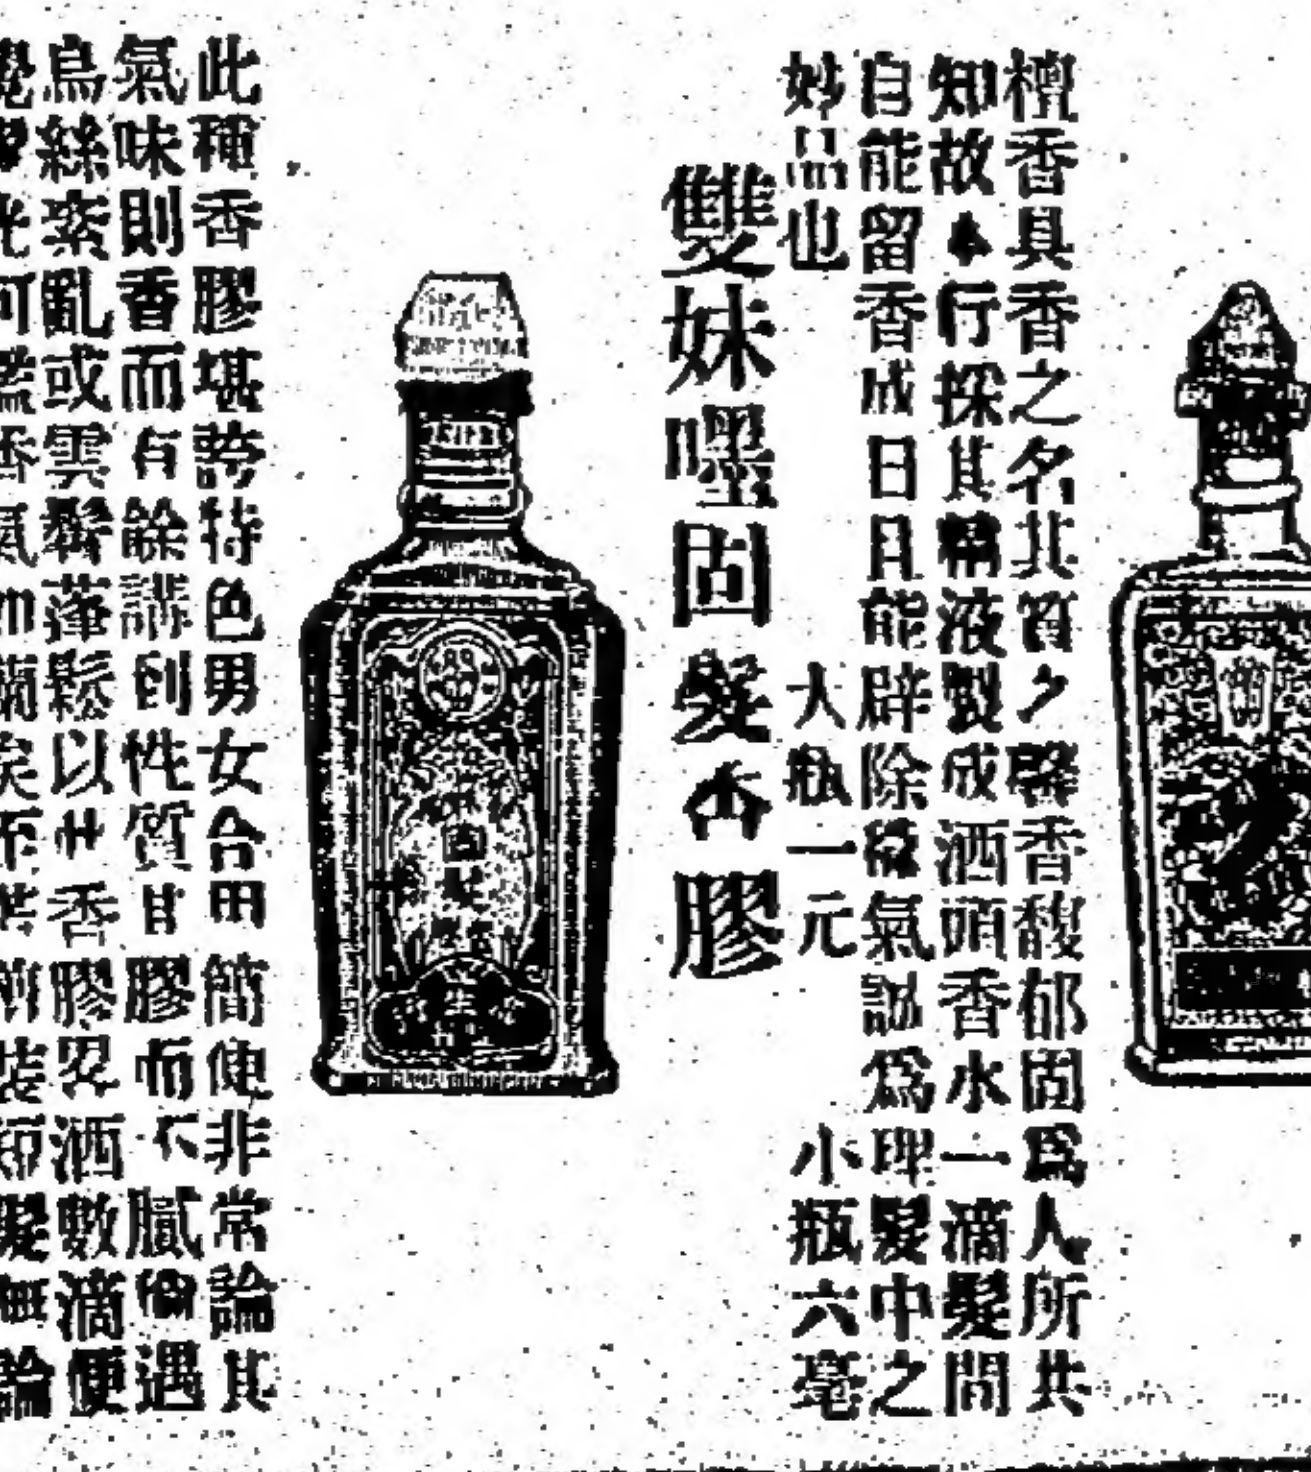 檀香具香之名其質之馨香馥郁固爲人所共
知故本行採其精液製成酒頭香水一滴髮間
自能留香成日且能辟除穢氣誠爲理髮中之
妙品也 大瓶一元 小瓶六毫
雙妹嚜固髮香膠
此種香膠堪誇特色男女合用簡便非常論其
氣味則香而有餘講到性質甘膠而不膩偷遇
烏絲紊亂或雲鬢蓬鬆以此香膠另洒數滴便